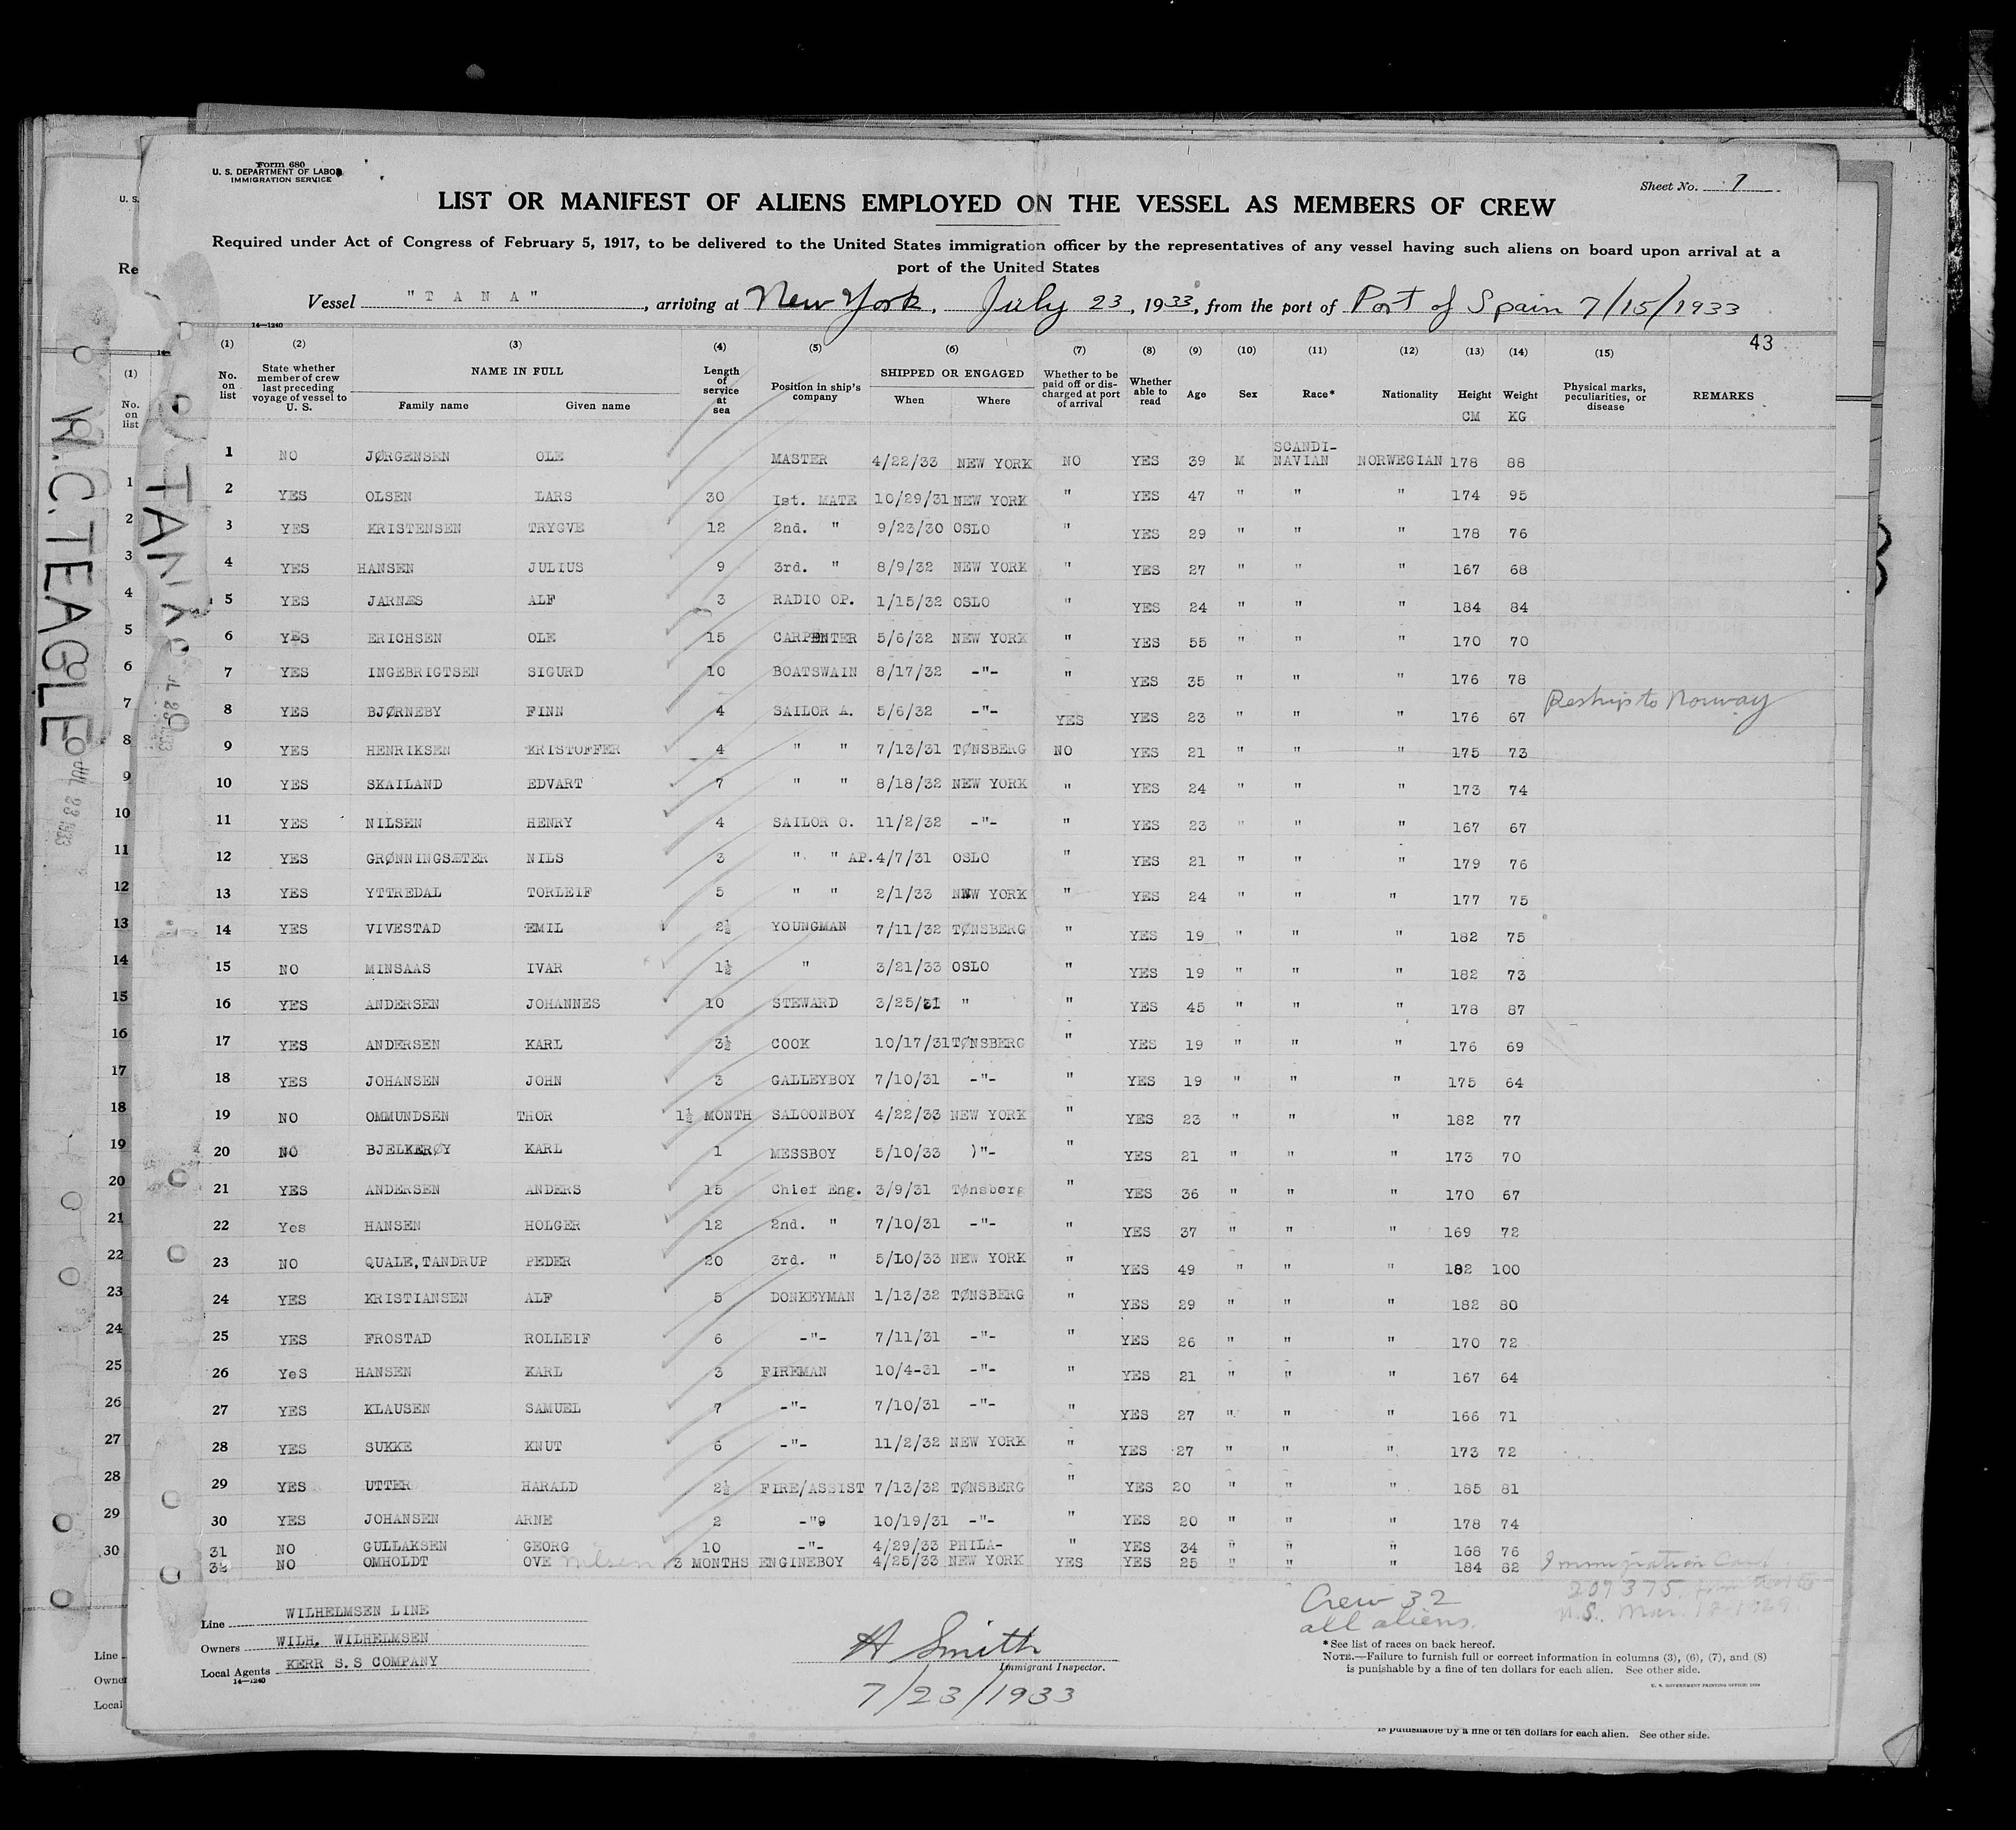 Form 680
U. S. DEPARTMENT OF LABOR
IMMIGRATION SERVICE
Sheet No. 1
LIST OR MANIFEST OF ALIENS EMPLOYED ON THE VESSEL AS MEMBERS OF CREW
Required under Act of Congress of February 5, 1917, to be delivered to the United States immigration officer by the representatives of any vessel having such aliens on board upon arrival at a
port of the United States
Vessel "T A N A", arriving at New York, July 23, 1933, from the port of Port of Spain 7/15/1933
14—1240
43
(1) (2) (3) (4) (5) (6) (7) (8) (9) (10) (11) (12) (13) (14) (15)
No. on list State whether member of crew last preceding voyage of vessel to U. S. NAME IN FULL Family name Given name Length of service at sea Position in ship's company SHIPPED OR ENGAGED When Where Whether to be paid off or discharged at port of arrival Whether able to read Age Sex Race* Nationality Height CM Weight KG Physical marks, peculiarities, or disease REMARKS
1 NO JØRGENSEN OLE MASTER 4/22/33 NEW YORK NO YES 39 M SCANDI-NAVIAN NORWEGIAN 178 88
2 YES OLSEN LARS 30 Ist. MATE 10/29/31 NEW YORK " YES 47 " " " 174 95
3 YES KRISTENSEN TRYGVE 12 2nd. " 9/23/30 OSLO " YES 29 " " " 178 76
4 YES HANSEN JULIUS 9 3rd. " 8/9/32 NEW YORK " YES 27 " " " 167 68
5 YES JARNÆS ALF 3 RADIO OP. 1/15/32 OSLO " YES 24 " " " 184 84
6 YES ERICHSEN OLE 15 CARPENTER 5/6/32 NEW YORK " YES 55 " " " 170 70
7 YES INGEBRIGTSEN SIGURD 10 BOATSWAIN 8/17/32 -"- " YES 35 " " " 176 78
8 YES BJØRNEBY FINN 4 SAILOR A. 5/6/32 -"- YES YES 23 " " " 176 67 Reships to Norway
9 YES HENRIKSEN KRISTOFFER 4 " " 7/13/31 TØNSBERG NO YES 21 " " " 175 73
10 YES SKAILAND EDVART 7 " " 8/18/32 NEW YORK " YES 24 " " " 173 74
11 YES NILSEN HENRY 4 SAILOR O. 11/2/32 -"- " YES 23 " " " 167 67
12 YES GRØNNINGSÆTER NILS 3 " " AP. 4/7/31 OSLO " YES 21 " " " 179 76
13 YES YTTREDAL TORLEIF 5 " " 2/1/33 NEW YORK " YES 24 " " " 177 75
14 YES VIVESTAD EMIL 2½ YOUNGMAN 7/11/32 TØNSBERG " YES 19 " " " 182 75
15 NO MINSAAS IVAR 1½ " 3/21/33 OSLO " YES 19 " " " 182 73
16 YES ANDERSEN JOHANNES 10 STEWARD 3/25/31 " " YES 45 " " " 178 87
17 YES ANDERSEN KARL 3½ COOK 10/17/31 TØNSBERG " YES 19 " " " 176 69
18 YES JOHANSEN JOHN 3 GALLEYBOY 7/10/31 -"- " YES 19 " " " 175 64
19 NO OMMUNDSEN THOR 1½ MONTH SALOONBOY 4/22/33 NEW YORK " YES 23 " " " 182 77
20 NO BJELKERØY KARL 1 MESSBOY 5/10/33 )"- " YES 21 " " " 173 70
21 YES ANDERSEN ANDERS 15 Chief Eng. 3/9/31 Tønsberg " YES 36 " " " 170 67
22 Yes HANSEN HOLGER 12 2nd. " 7/10/31 -"- " YES 37 " " " 169 72
23 NO QUALE,TANDRUP PEDER 20 3rd. " 5/L0/33 NEW YORK " YES 49 " " " 182 100
24 YES KRISTIANSEN ALF 5 DONKEYMAN 1/13/32 TØNSBERG " YES 29 " " " 182 80
25 YES FROSTAD ROLLEIF 6 -"- 7/11/31 -"- " YES 26 " " " 170 72
26 YeS HANSEN KARL 3 FIREMAN 10/4-31 -"- " YES 21 " " " 167 64
27 YES KLAUSEN SAMUEL 7 -"- 7/10/31 -"- " YES 27 " " " 166 71
28 YES SUKKE KNUT 6 -"- 11/2/32 NEW YORK " YES 27 " " " 173 72
29 YES UTTER HARALD 2½ FIRE/ASSIST 7/13/32 TØNSBERG " YES 20 " " " 185 81
30 YES JOHANSEN ARNE 2 -"9 10/19/31 -"- " YES 20 " " " 178 74
31 NO GULLAKSEN GEORG 10 -"- 4/29/33 PHILA- " YES 34 " " " 168 76
32 NO OMHOLDT OVE Nilsen 3 MONTHS ENGINEBOY 4/25/33 NEW YORK YES YES 25 " " " 184 82 Immigration Card
207375
U.S. Mar. 18-1929
Crew 32
all aliens.
Line WILHELMSEN LINE
Owners WILH. WILHELMSEN
Local Agents KERR S.S COMPANY
14—1240
H Smith
Immigrant Inspector.
7/23/1933
*See list of races on back hereof.
NOTE.—Failure to furnish full or correct information in columns (3), (6), (7), and (8)
is punishable by a fine of ten dollars for each alien. See other side.
is punishable by a fine of ten dollars for each alien. See other side.
TANA
W.C. TEAGLE
JUL 23 1933
U. S.
Re
(1)
No.
on
list
1
2
3
4
5
6
7
8
9
10
11
12
13
14
15
16
17
18
19
20
21
22
23
24
25
26
27
28
29
30
Line
Owner
Local